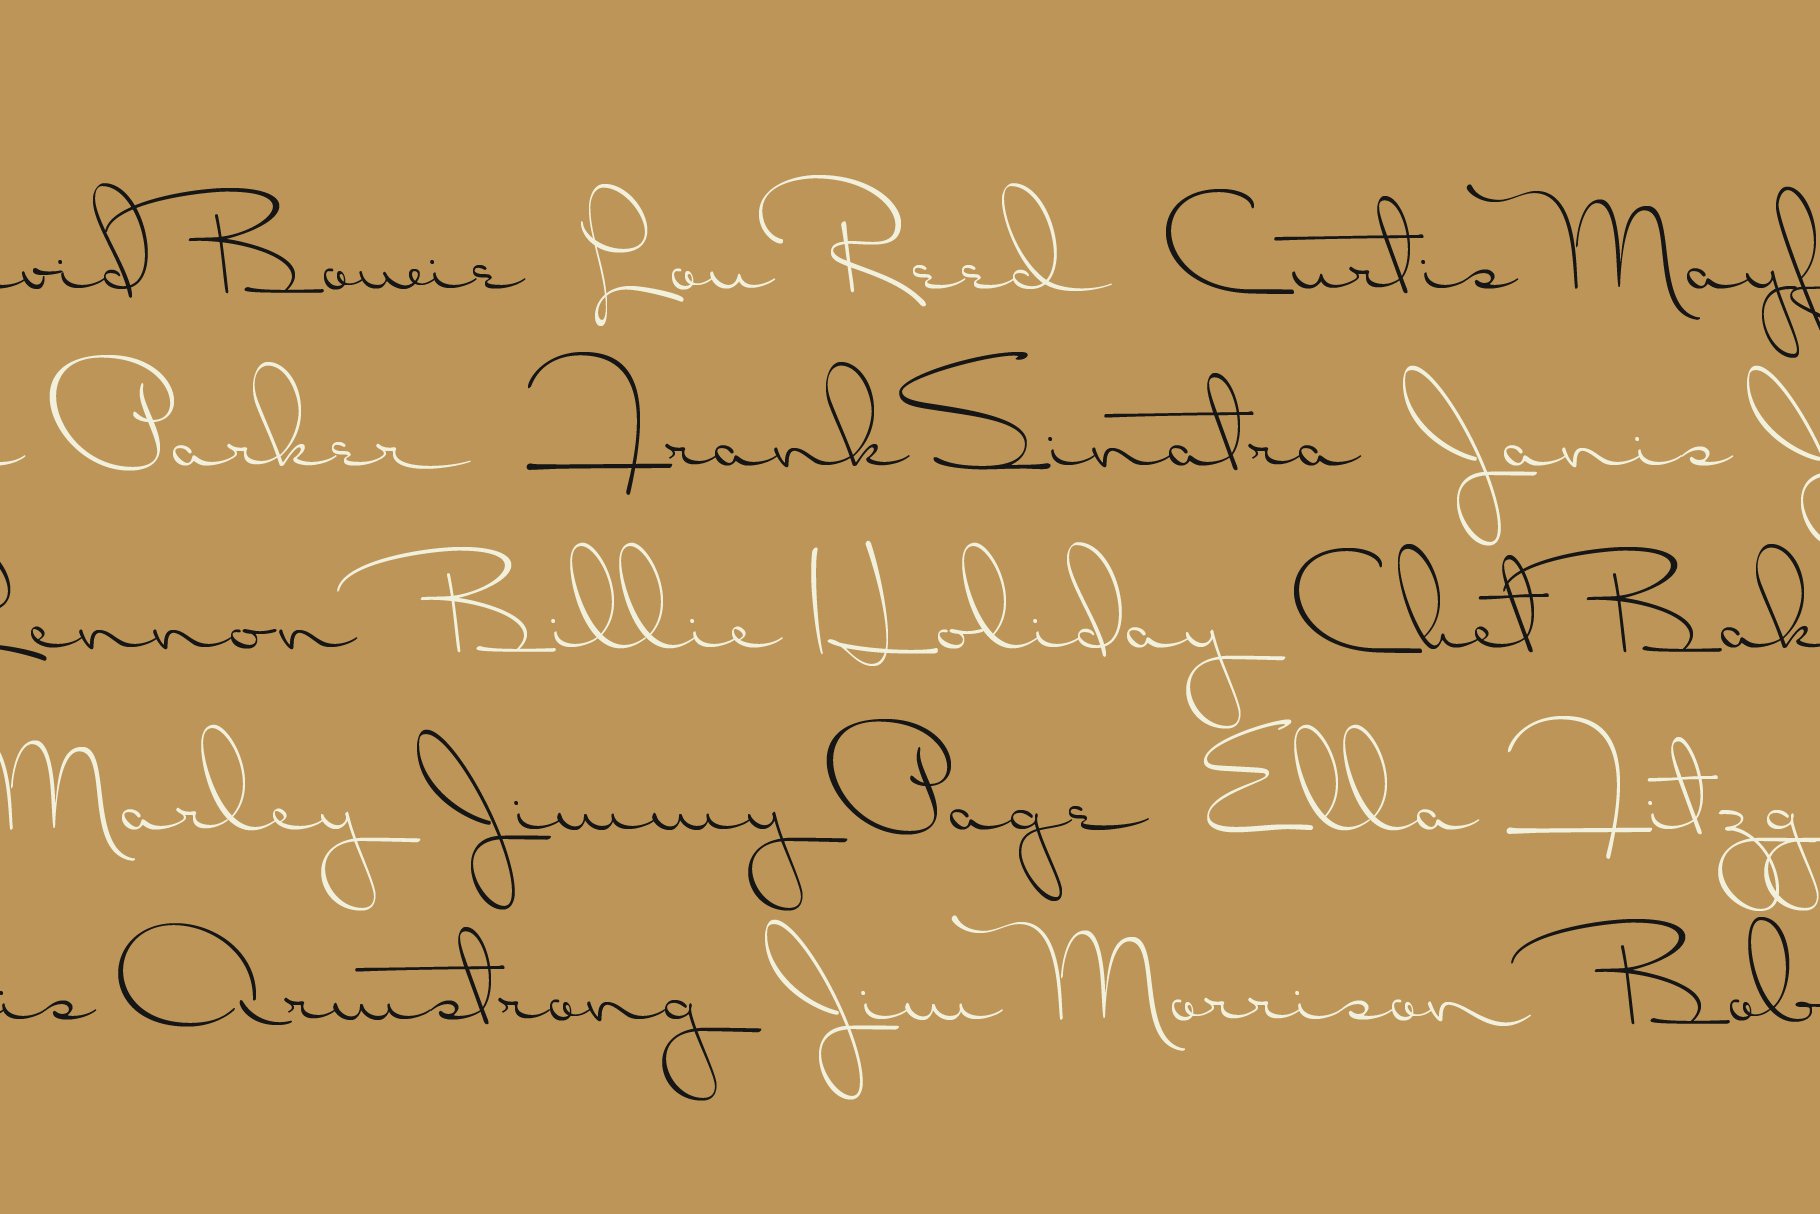 vid Bowie Lou Reed Curtis Mayf
e Parker Frank Sinatra Janis J
Lennon Billie Holiday Chet Bak
Marley Jimmy Page Ella Fitzg
is Armstrong Jim Morrison Bob